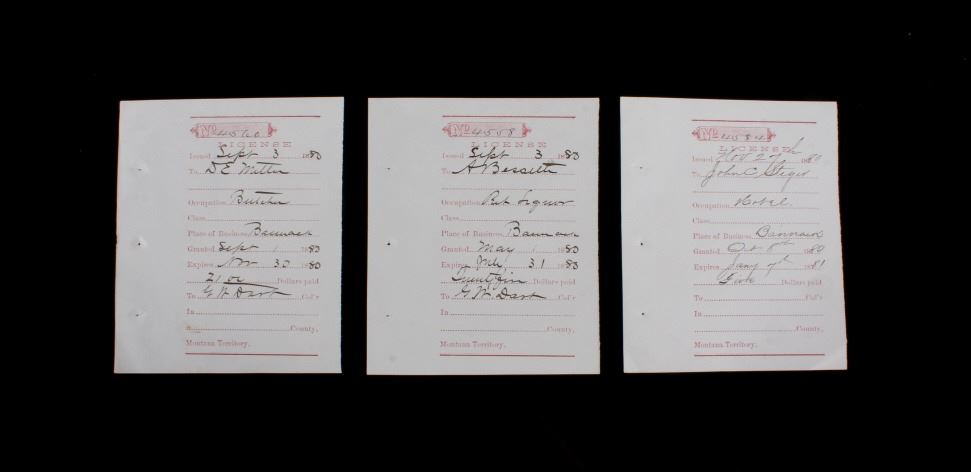 No 4560
LICENSE
Issued Sept 3 1880
To D.E. Miller
Occupation Butcher
Class
Place of Business Bannack
Granted Sept 1 1880
Expires Nov 30 1880
21 00 Dollars paid
To G W Dart Col'r
In
County,
Montana Territory.
No 4558
LICENSE
Issued Sept 3 1880
To A Bessette
Occupation Ret Liquor
Class
Place of Business Bannack
Granted May 1 1880
Expires July 31 1880
Dollars paid
To G. W. Dart Col'r
In
County,
Montana Territory.
No 4584
LICENSE
Issued Nov 27th 1880
To John C Steger
Occupation Hotel
Class
Place of Business Bannack
Granted Oct 8th 1880
Expires Jany 7th 1881
Five Dollars paid
To Col'r
In
County,
Montana Territory.